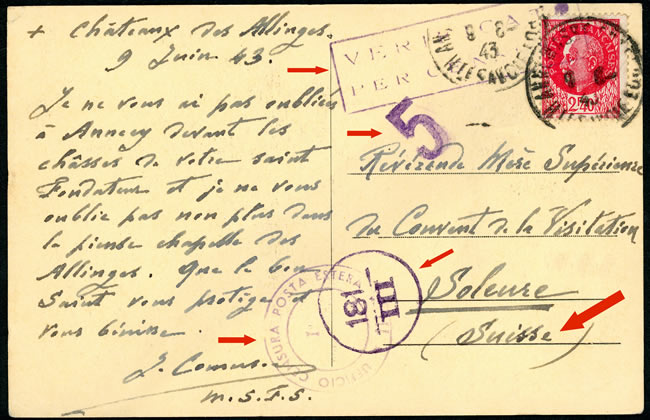 + Châteaux des Allinges.
9 Juin 43.
Je ne vous ai pas oubliés
à Annecy devant les
châsses de votre saint
Fondateur et je ne vous
oublie pas non plus dans
la pieuse chapelle des
Allinges. Que le bon
Saint vous protège et
vous bénisse.
M.S.F.S.
VER
PER C
43
2F40
5
Révérende Mère Supérieure
du Couvent de la Visitation
Soleure
(Suisse)
UFFICIO CENSURA POSTA ESTERA
181
III